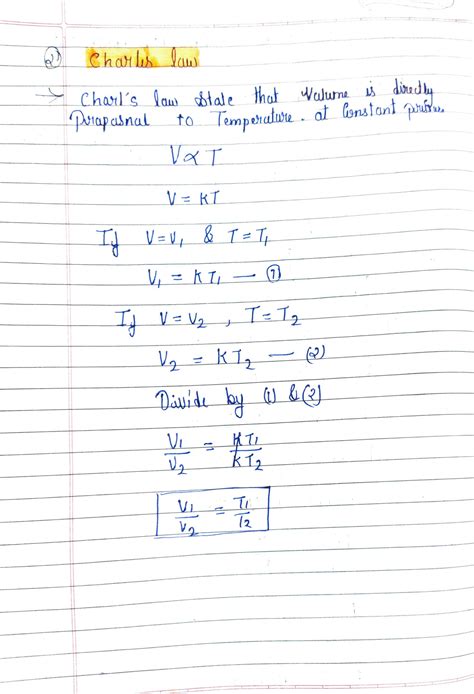 2) Charles law
→ Charl's law state that Volume is directly
Prapasnal to Temperature. at Constant
V ∝ T
V = KT
If V = V₁ & T = T₁
V₁ = KT₁ — ①
If V = V₂ , T = T₂
V₂ = KT₂ — (2)
Divide by (1) & (2)
V₁/V₂ = KT₁/KT₂
V₁/V₂ = T₁/T₂